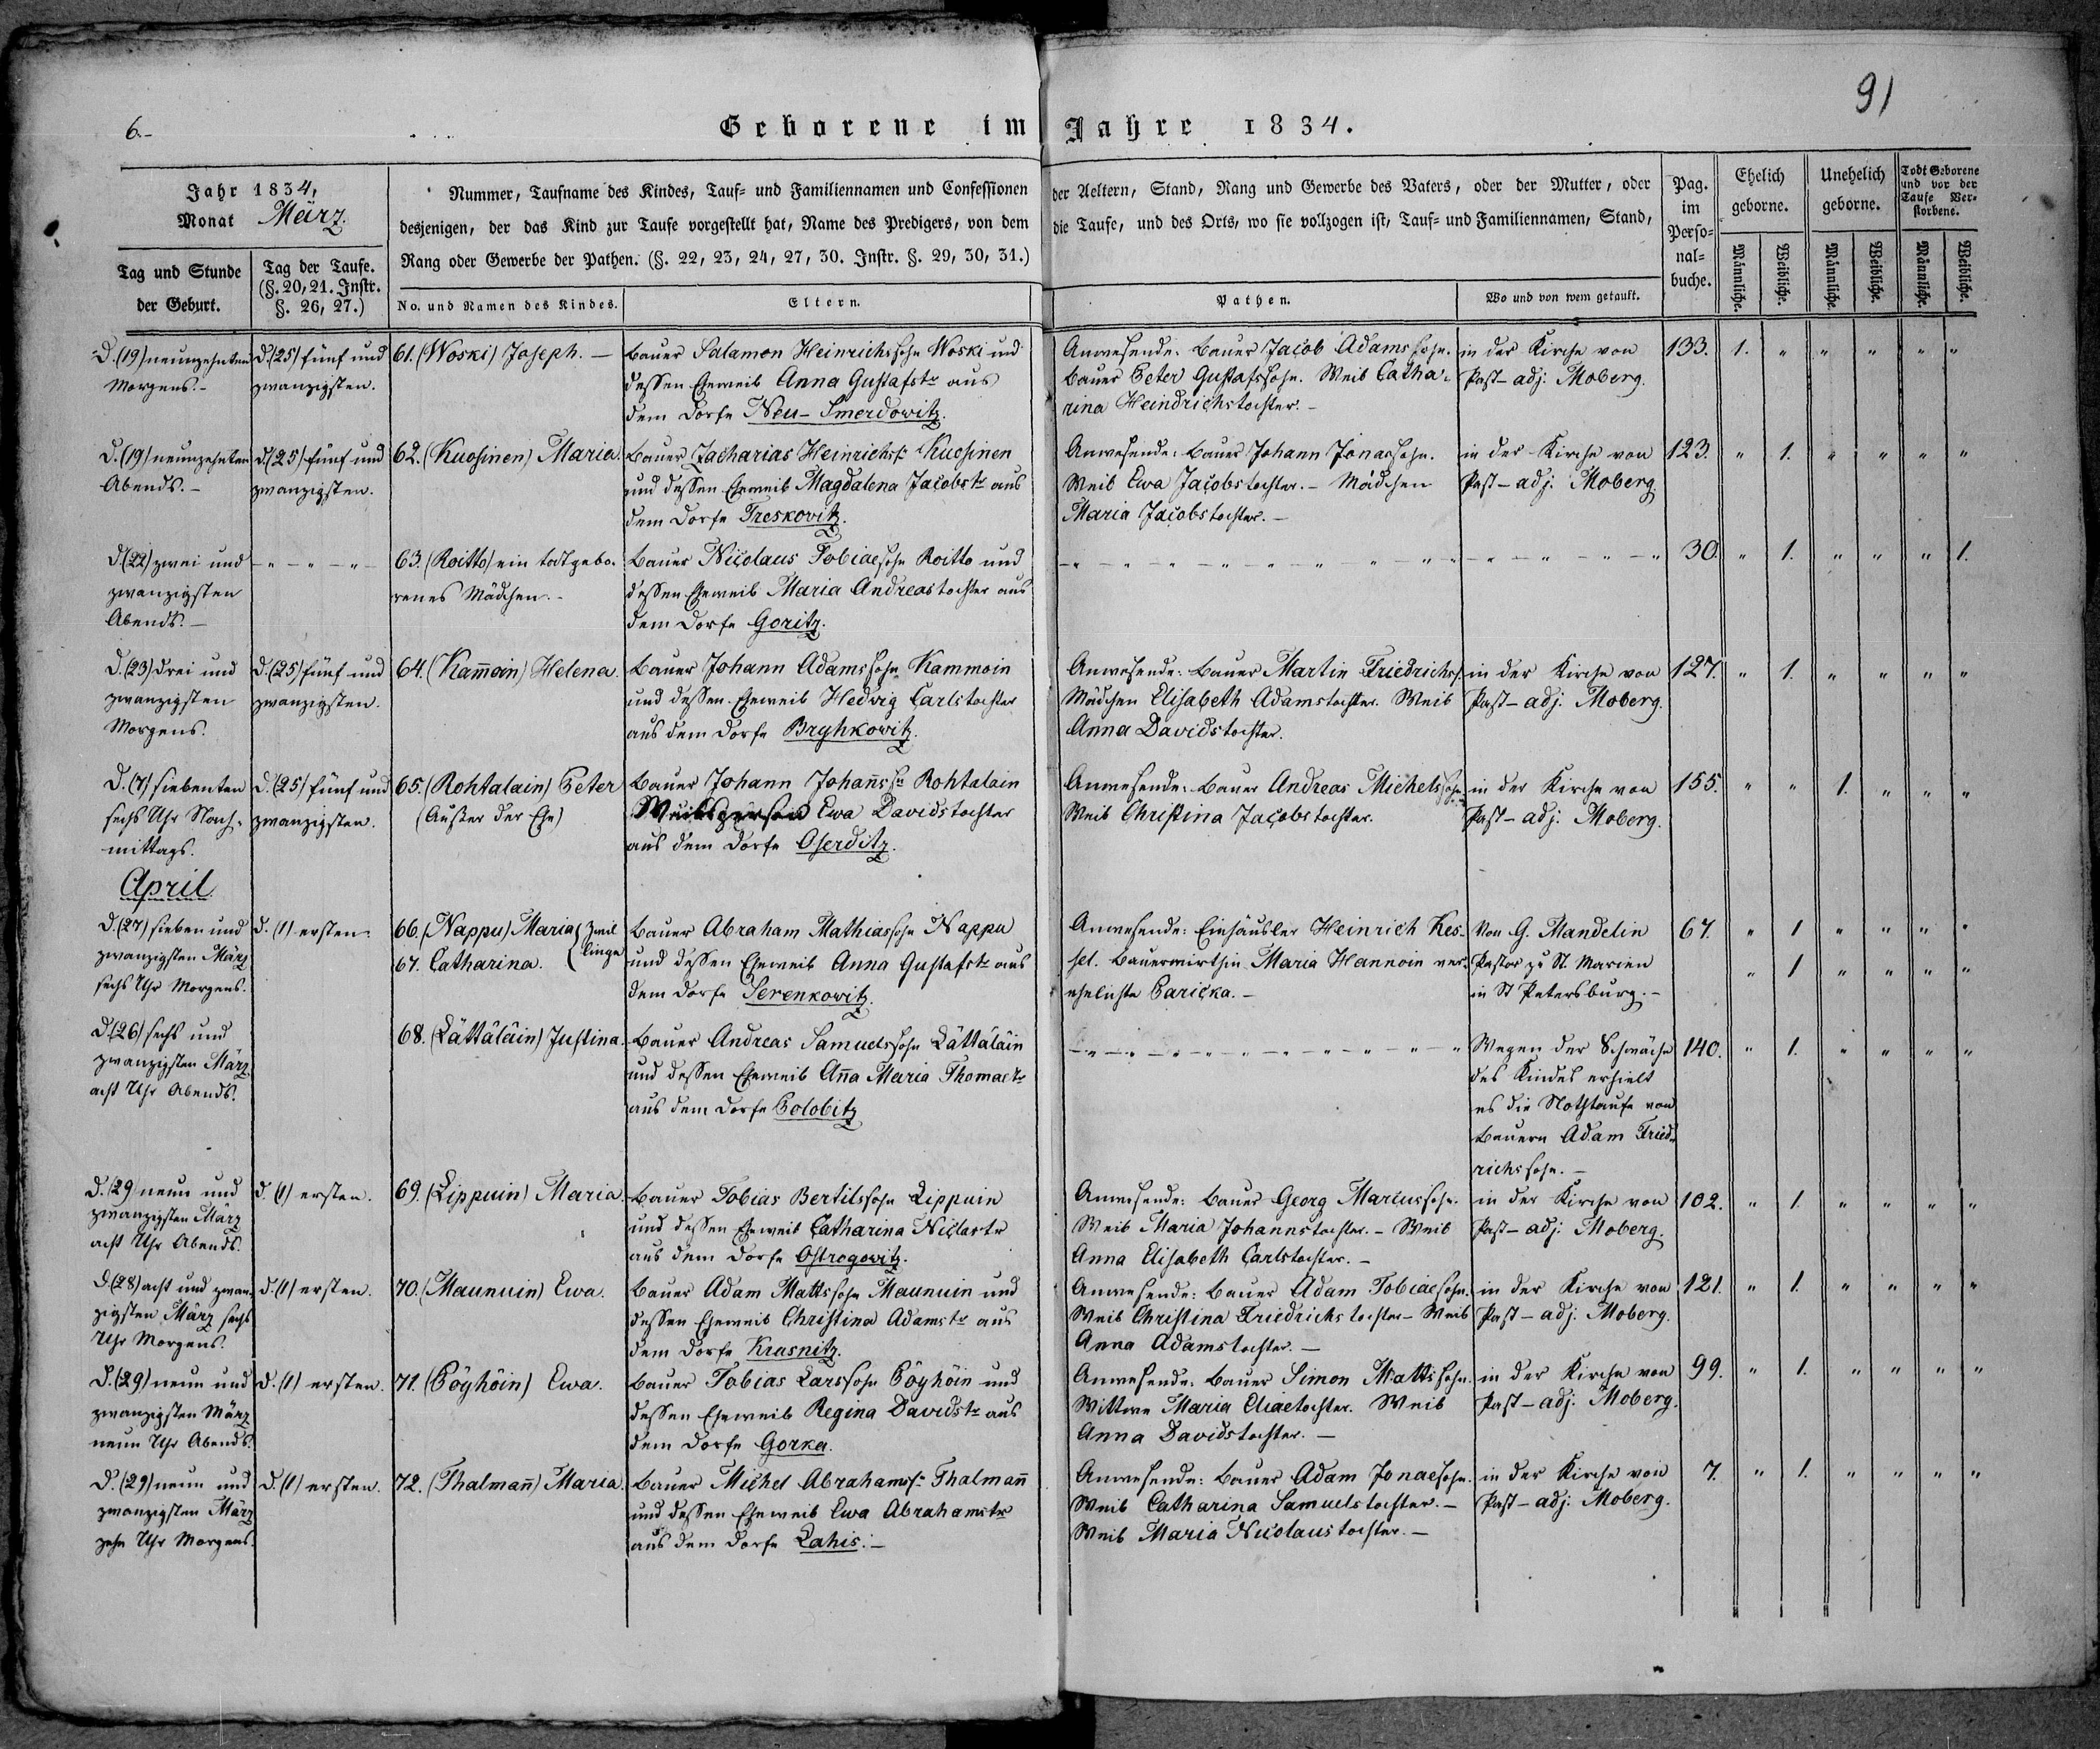 91
6.-
Geborene im Jahre 1834.
Jahr 1834,
Monat März.
Nummer, Taufname des Kindes, Tauf- und Familiennamen und Confessionen der Aeltern, Stand, Rang und Gewerbe des Vaters, oder der Mutter, oder
desjenigen, der das Kind zur Taufe vorgestellt hat, Name des Predigers, von dem die Taufe, und des Orts, wo sie vollzogen ist, Tauf- und Familiennamen, Stand,
Rang oder Gewerbe der Pathen. (§. 22, 23, 24, 27, 30. Instr. §. 29, 30, 31.)
Pag.
im
Perso-
nal-
buche.
Ehelich
geborne.
Unehelich
geborne.
Todt Geborene
und vor der
Taufe Ver-
storbene.
Tag und Stunde
der Geburt.
Tag der Taufe.
(§. 20, 21. Instr.
§. 26, 27.)
No. und Namen des Kindes.
Eltern.
Pathen.
Wo und von wem getauft.
Männliche.
Weibliche.
Männliche.
Weibliche.
Männliche.
Weibliche.
D. (19) neunzehnten
Morgens.-
d. (25) fünf und
zwanzigsten.
61. (Woski) Joseph. -
Bauer Salamon Heinrichssohn Woski und
dessen Eheweib Anna Gustafstr aus
dem Dorfe Neu-Smerdowitz.
Anwesende: Bauer Jacob Adamssohn.
Bauer Peter Gustafssohn. Weib Catha-
rina Heindrichstochter. -
in der Kirche von
Past-adj: Moberg.
133. 1. " " " " "
D. (19) neunzehnten
Abends. -
d. (25) fünf und
zwanzigsten.
62. (Kuosinen) Maria.
Bauer Zacharias Heinrichss: Kuosinen
und dessen Eheweib Magdalena Jacobstr aus
dem Dorfe Treskovitz.
Anwesende: Bauer Johann Jonassohn.
Weib Ewa Jacobstochter. - Mädchen
Maria Jacobstochter. -
in der Kirche von
Past-adj: Moberg
123. " 1. " " " "
D. (22) zwei und
zwanzigsten
Abends. -
- " - " - " -
63. (Roitto) ein todtgebo-
renes Mädchen. -
Bauer Nicolaus Tobiaesohn Roitto und
dessen Eheweib Maria Andreastochter aus
dem Dorfe Goritz.
30. " 1. " " " 1.
D. (23) drei und
zwanzigsten
Morgens.
d. (25) fünf und
zwanzigsten.
64. (Kam̅oin) Helena.
Bauer Johann Adamssohn Kammoin
und dessen Eheweib Hedwig Carlstochter
aus dem Dorfe Bryhkowitz.
Anwesende: Bauer Martin Friedrichss.
Mädchen Elisabeth Adamstochter. Weib
Anna Davidstochter.
in der Kirche von
Past-adj: Moberg.
127. " 1. " " " "
D. (7) siebenten
sechs Uhr Nach-
mittags.
d. (25) fünf und
zwanzigsten.
65. (Rohtalain) Peter
(Außer der Ehe)
Bauer Johann Johan̅ssn Rohtalain
Weibsperson Ewa Davidstochter
aus dem Dorfe Oserditz.
Anwesende: Bauer Andreas Michelssohn
Weib Christina Jacobstochter.
in der Kirche von
Past-adj: Moberg.
155. " " 1. " " "
April
D. (27) sieben und
zwanzigsten März
sechs Uhr Morgens.
d. (1) ersten.
66. (Nappu) Maria
67. Catharina.
Zwil
linge
Bauer Abraham Mathiassohn Nappu
und dessen Eheweib Anna Gustafstr aus
dem Dorfe Serenkowitz.
Anwesende: Einhäusler Heinrich Kes-
sel. Bauerwirthin Maria Hannoin ver-
ehelichte Paricka. -
Von G. Mandelin
Pastor zu St. Marien
in St Petersburg. -
67. " 1 " " " "
" 1 " " " "
D. (26) sechs und
zwanzigsten März
acht Uhr Abends.
68. (Lättäläin) Justina.
Bauer Andreas Samuelssohn Lättäläin
und dessen Eheweib An̅a Maria Thomaetr
aus dem Dorfe Colobitz
Wegen der Schwäche
des Kindes erhielt
es die Nothtaufe von
Bauern Adam Fried-
richssohn. -
140. " 1. " " " "
D. (29) neun und
zwanzigsten März
acht Uhr Abends.
d. (1) ersten.
69. (Lippuin) Maria.
Bauer Tobias Bertilssohn Lippuin
und dessen Eheweib Catharina Niclastr
aus dem Dorfe Ostrogowitz.
Anwesende: Bauer Georg Marcussohn.
Weib Maria Johannstochter. - Weib
Anna Elisabeth Carlstochter. -
in der Kirche von
Past-adj: Moberg.
102. " 1. " " " "
d. (28) acht und zwan-
zigsten März sechs
Uhr Morgens.
d. (1) ersten.
70. (Maunuin) Ewa.
Bauer Adam Mattssohn Maunuin und
dessen Eheweib Christina Adamstr aus
dem Dorfe Krasnitz.
Anwesende: Bauer Adam Tobiaesohn.
Weib Christina Friedrichstochter - Weib
Anna Adamstochter. -
in der Kirche von
Past-adj: Moberg.
121. " 1. " " " "
D. (29) neun und
zwanzigsten März
neun Uhr Abends.
d. (1) ersten.
71. (Pöyhöin) Ewa.
Bauer Tobias Larssohn Pöyhöin und
dessen Eheweib Regina Davidstr aus
dem Dorfe Gorka.
Anwesende: Bauer Simon Mattssohn.
Wittwe Maria Eliaetochter. Weib
Anna Davidstochter. -
in der Kirche von
Past-adj: Moberg.
99. " 1. " " " "
D. (29) neun und
zwanzigsten März
zehn Uhr Morgens.
d. (1) ersten.
72. (Thalman̅) Maria.
Bauer Michel Abrahamss: Thalman̅
und dessen Eheweib Ewa Abrahamstr
aus dem Dorfe Lahis. -
Anwesende: Bauer Adam Jonaesohn.
Weib Catharina Samuelstochter. -
Weib Maria Nicolaustochter. -
in der Kirche von
Past-adj: Moberg.
7. " 1. " " " "